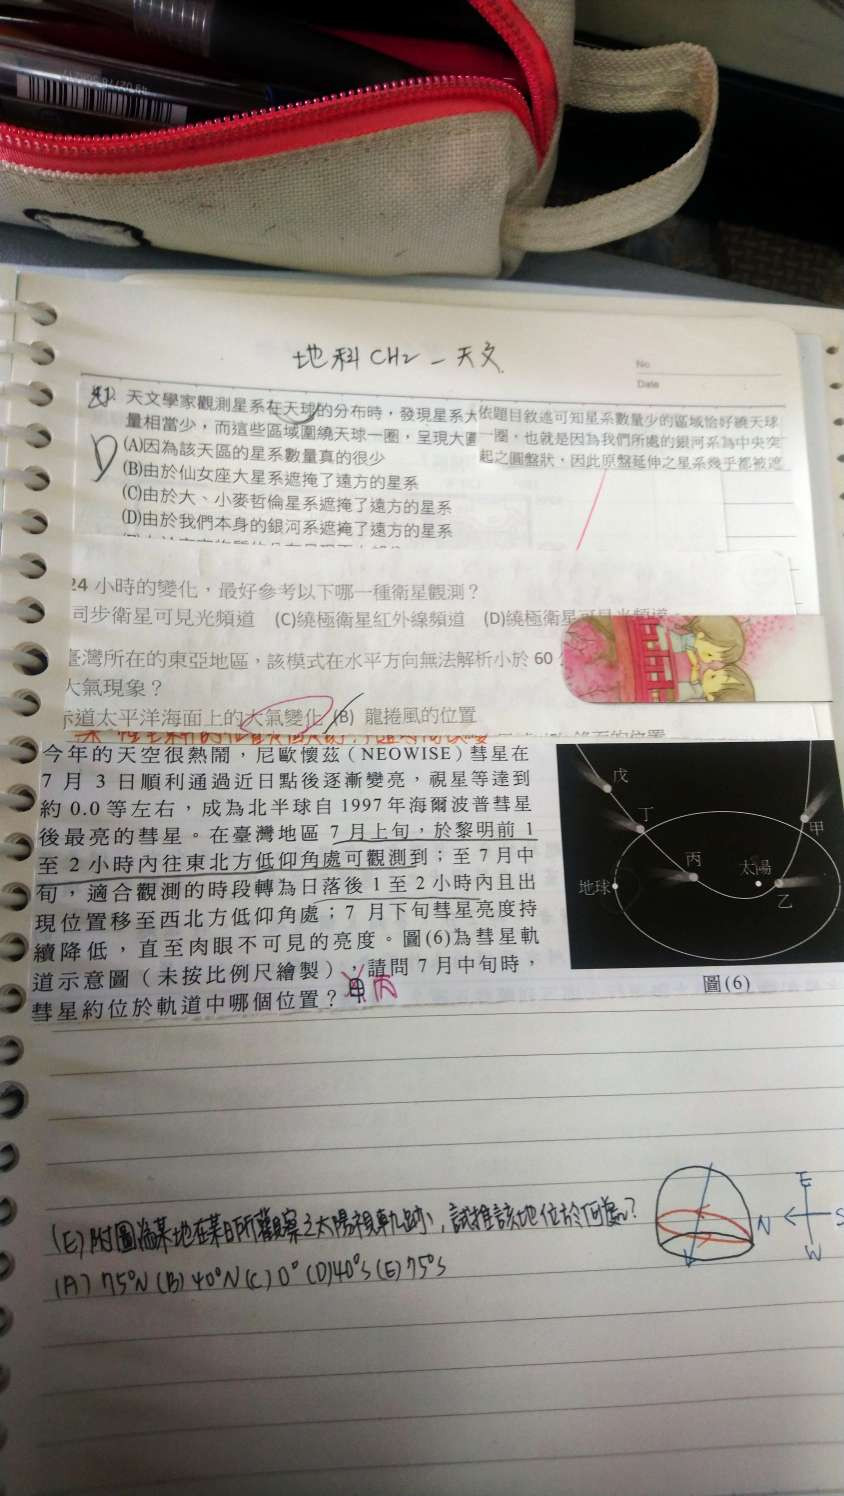 地科 CH2 — 天文
No
Date
天文學家觀測星系在天球的分布時，發現星系大
量相當少，而這些區域圍繞天球一圈，呈現大圓
D
(A)因為該天區的星系數量真的很少
(B)由於仙女座大星系遮掩了遠方的星系
(C)由於大、小麥哲倫星系遮掩了遠方的星系
(D)由於我們本身的銀河系遮掩了遠方的星系
依題目敘述可知星系數量少的區域恰好繞天球
一圈，也就是因為我們所處的銀河系為中央突
起之圓盤狀，因此原盤延伸之星系幾乎都被遮
24 小時的變化，最好參考以下哪一種衛星觀測？
司步衛星可見光頻道 (C)繞極衛星紅外線頻道 (D)繞極衛星可見光頻道
臺灣所在的東亞地區，該模式在水平方向無法解析小於 60
大氣現象？
赤道太平洋海面上的大氣變化 (B) 龍捲風的位置
今年的天空很熱鬧，尼歐懷茲（NEOWISE）彗星在
7 月 3 日順利通過近日點後逐漸變亮，視星等達到
約 0.0 等左右，成為北半球自 1997 年海爾波普彗星
後最亮的彗星。在臺灣地區 7 月上旬，於黎明前 1
至 2 小時內往東北方低仰角處可觀測到；至 7 月中
旬，適合觀測的時段轉為日落後 1 至 2 小時內且出
現位置移至西北方低仰角處；7 月下旬彗星亮度持
續降低，直至肉眼不可見的亮度。圖(6)為彗星軌
道示意圖（未按比例尺繪製），請問 7 月中旬時，
彗星約位於軌道中哪個位置？ 甲 丙
戊
丁
甲
丙
太陽
地球
乙
圖(6)
(E) 附圖為某地在某日所觀察之太陽視軌跡，試推該地位於何處？
(A) 75°N (B) 40°N (C) 0° (D) 40°S (E) 75°S
E
N
S
W